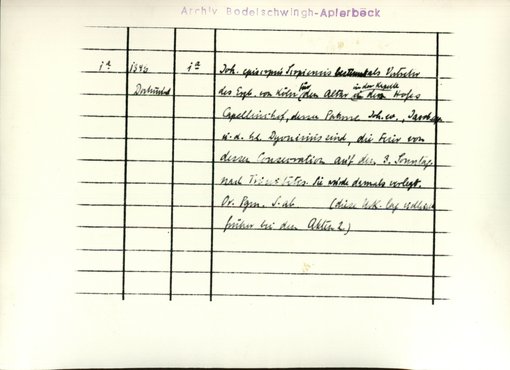 Archiv Bodelschwingh-Apierbeck
1a 1346 1a Joh. episcopus als Vertreter
Dortmund des Erzb. von Köln, für den Altar in der Kapelle in dem Hofes
Capellenhof, dessen Patrone Joh. ev., Jacobus
u. d. hl. Dyonisius sind, die Feier von
dessen Consecration auf den 3. Sonntag
nach Trinitatis. Sie würde damals verlegt.
Or. Pgm. S. ab (diese Urk. lag
früher bei den Akten 2.)